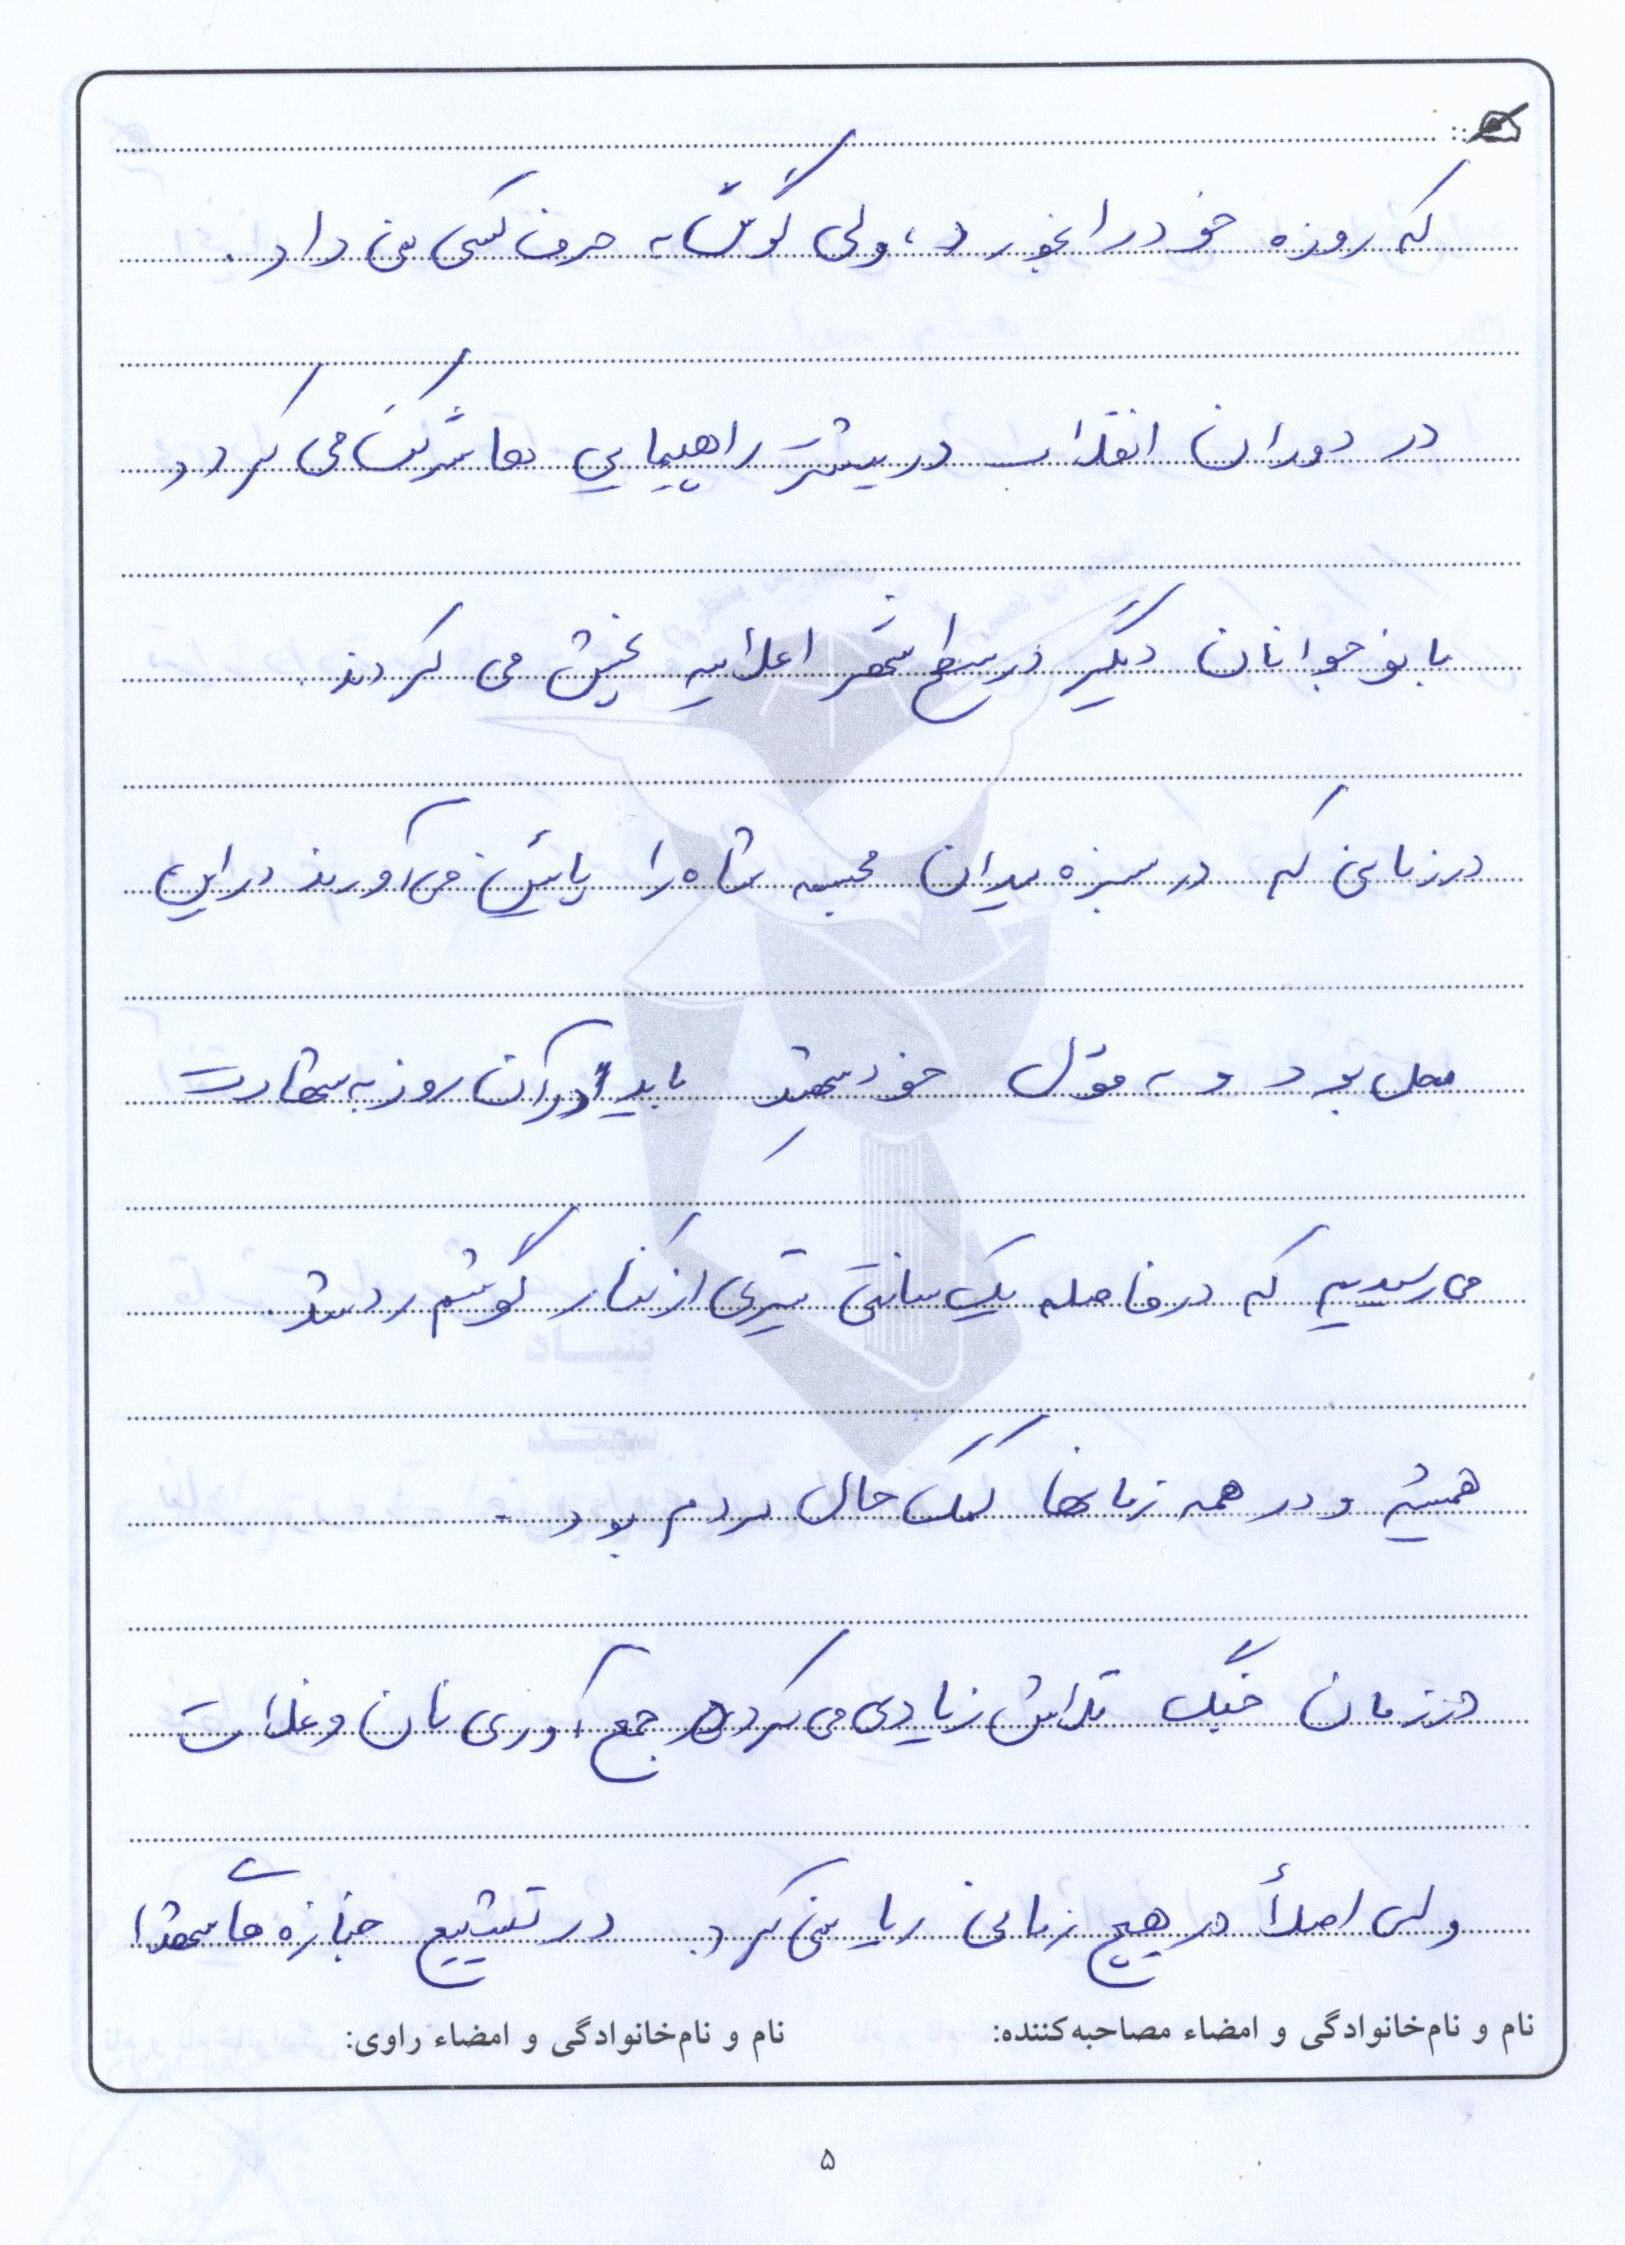 که روزه خود را بخورد، ولی گوش به حرف کسی نمی داد.
در دوران انقلاب در بیشتر راهپیمایی ها شرکت می کرد و
با نوجوانان دیگر در سطح شهر اعلامیه پخش می کردند.
در زمانی که در سبزه میدان مجسمه شاه را پائین می آورند در این
محل بود و به قول خود شهید باید در آن روز به شهادت
می رسیدیم که در فاصله یک سانتی تیری از کنار گوشم رد شد.
همیشه و در همه زمانها کمک حال مردم بود.
در زمان جنگ تلاش زیادی می کرد در جمع آوری نان و غلات
ولی اصلاً در هیچ زمانی ریا نمی کرد. در تشییع جنازه های شهدا
نام و نام‌خانوادگی و امضاء مصاحبه‌کننده: نام و نام‌خانوادگی و امضاء راوی:
۵